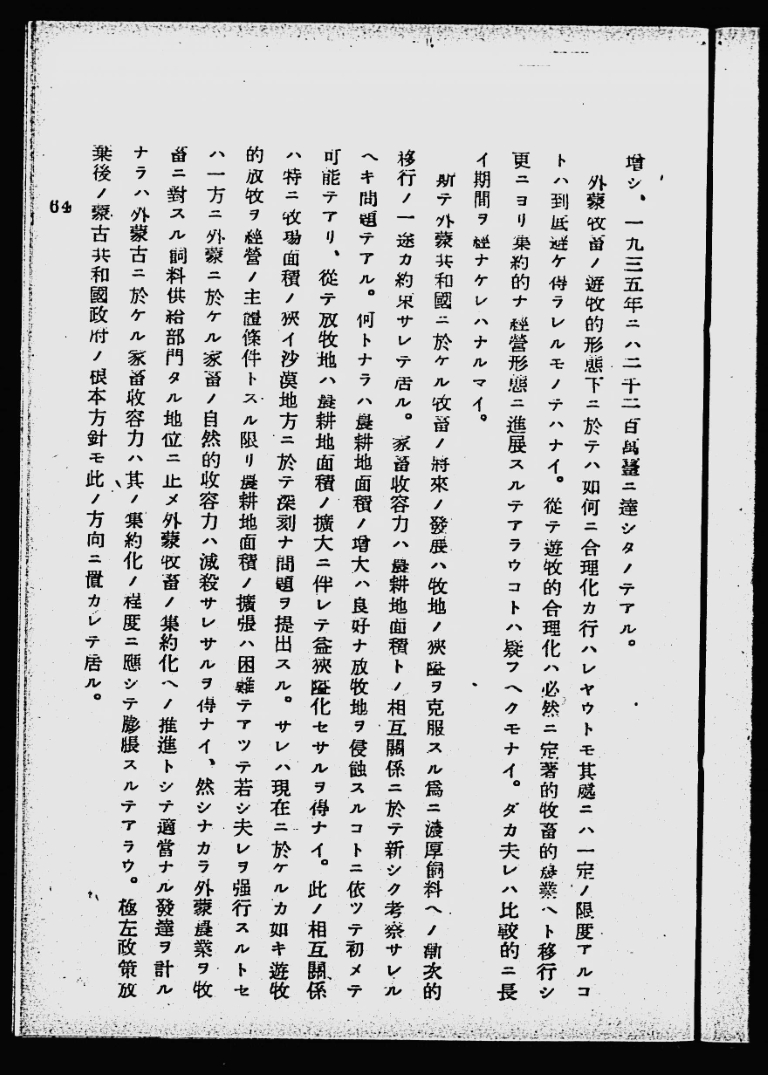 增シ、一九三五年ニハ二千二百萬蠶ニ達シタノテアル。
外蒙牧畜ノ遊牧的形態下ニ於テハ如何ニ合理化カ行ハレヤウトモ其處ニハ一定ノ限度アルコ
トハ到底避ケ得ラレルモノテハナイ。從テ遊牧的合理化ハ必然ニ定著的牧畜的農業ヘト移行シ
更ニヨリ集約的ナ經營形態ニ進展スルテアラウコトハ疑フヘクモナイ。ダカ夫レハ比較的ニ長
イ期間ヲ經ナケレハナルマイ。
斯テ外蒙共和國ニ於ケル牧畜ノ將來ノ發展ハ牧地ノ狹隘ヲ克服スル爲ニ濃厚飼料ヘノ漸次的
移行ノ一途カ約束サレテ居ル。家畜收容力ハ農耕地面積トノ相互關係ニ於テ新シク考察サレル
ヘキ問題テアル。何トナラハ農耕地面積ノ增大ハ良好ナ放牧地ヲ侵蝕スルコトニ依ツテ初メテ
可能テアリ、從テ放牧地ハ農耕地面積ノ擴大ニ伴レテ益狹隘化セサルヲ得ナイ。此ノ相互關係
ハ特ニ牧場面積ノ狹イ沙漠地方ニ於テ深刻ナ問題ヲ提出スル。サレハ現在ニ於ケルカ如キ遊牧
的放牧ヲ經營ノ主證條件トスル限リ農耕地面積ノ擴張ハ困難テアツテ若シ夫レヲ强行スルトセ
ハ一方ニ外蒙ニ於ケル家畜ノ自然的收容力ハ減殺サレサルヲ得ナイ、然シナカラ外蒙農業ヲ牧
畜ニ對スル飼料供給部門タル地位ニ止メ外蒙牧畜ノ集約化ヘノ推進トシテ適當ナル發達ヲ計ル
ナラハ外蒙古ニ於ケル家畜收容力ハ其ノ集約化ノ程度ニ應シテ膨脹スルテアラウ。極左政策放
棄後ノ蒙古共和國政府ノ根本方針モ此ノ方向ニ置カレテ居ル。
64